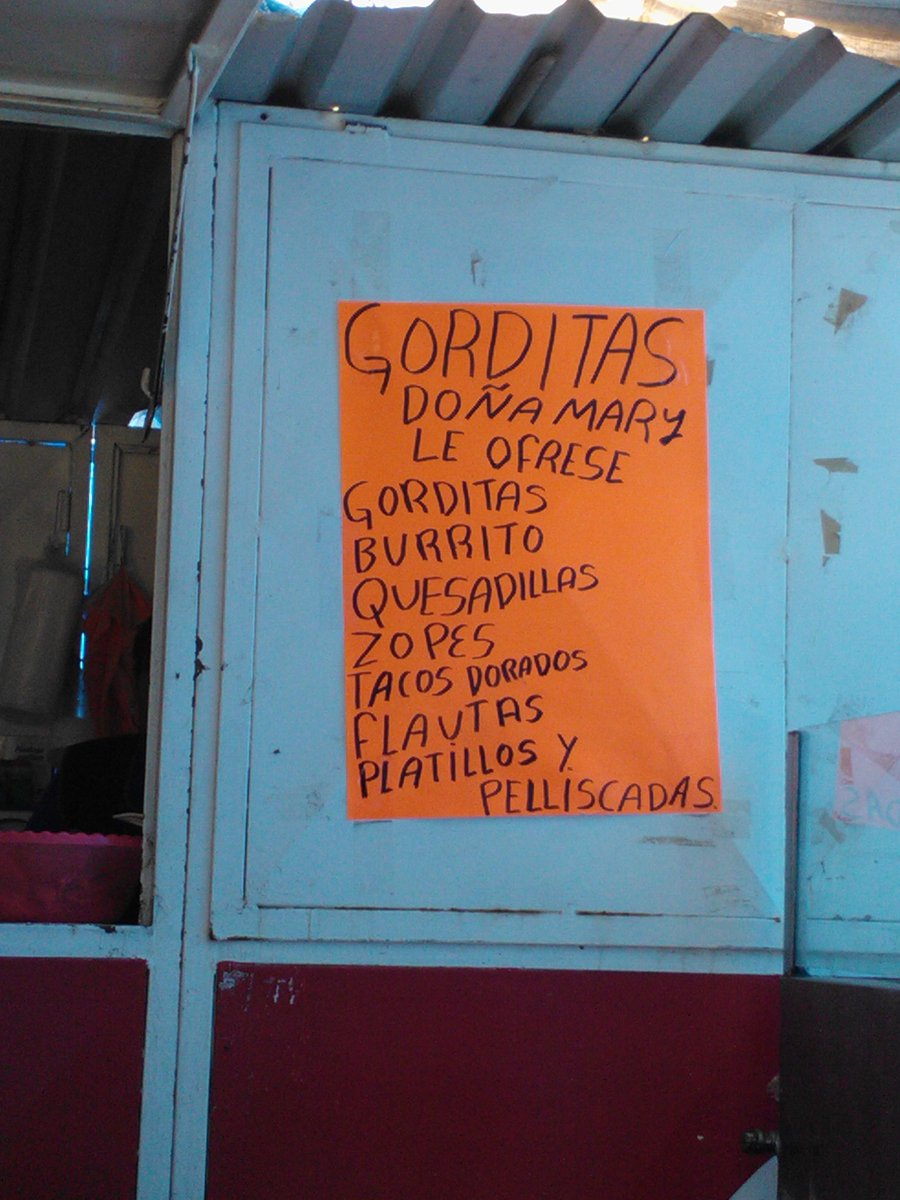 GORDITAS
DOÑA MARY
LE OFRESE
GORDITAS
BURRITO
QUESADILLAS
ZOPES
TACOS DORADOS
FLAUTAS
PLATILLOS Y
PELLISCADAS.